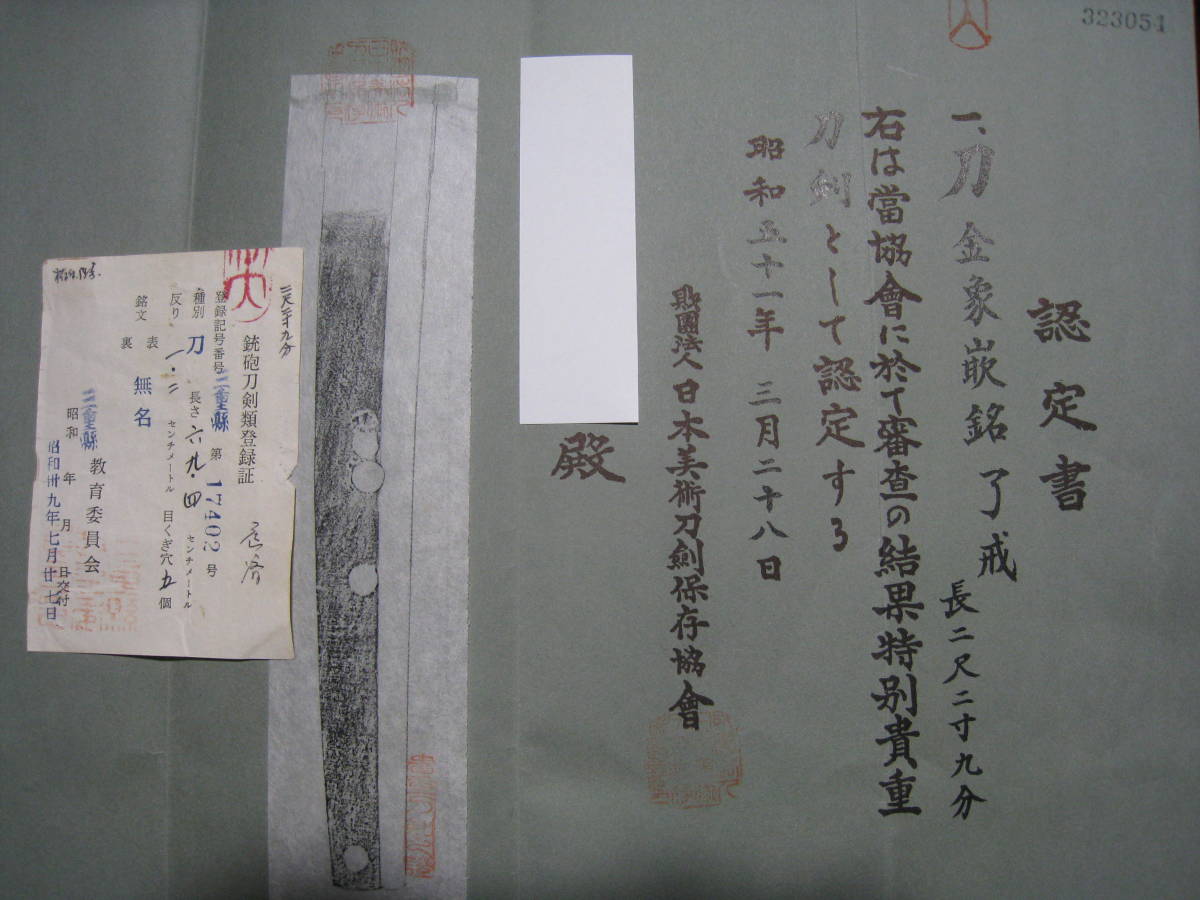 323054
認定書
一、刀 金象嵌銘 了戒
長二尺二寸九分
右は當協會に於て審査の結果特別貴重
刀剣として認定する
昭和五十一年 三月二十八日
財團法人日本美術刀劍保存協會
殿
銃砲刀剣類登録証
登録記号番号 三重縣 第 17402 号
種別 刀 長さ 六九・四 センチメートル
反り 一・二 センチメートル 目くぎ穴 五 個
銘文 表 無名
裏
三重縣 教育委員会
昭和 年 月 日交付
昭和卅九年七月廿七日
二尺二寸九分